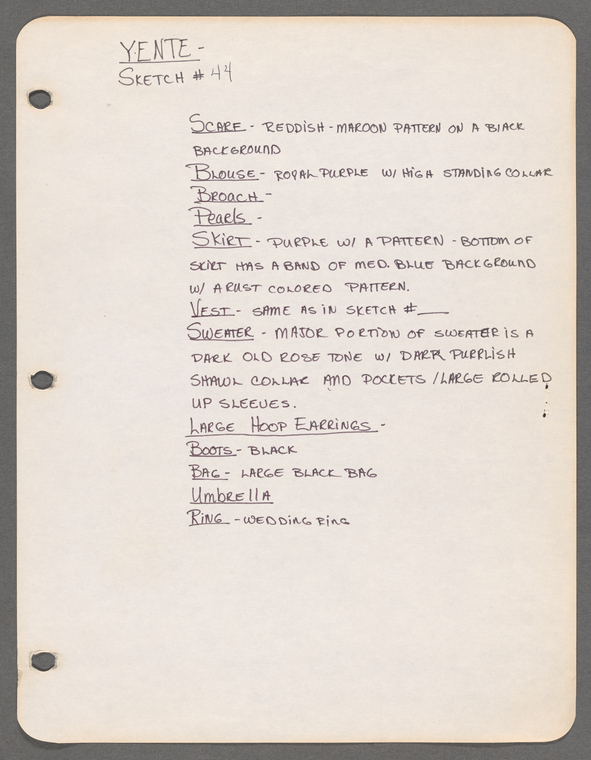 YENTE -
SKETCH # 44
SCARF - REDDISH - MAROON PATTERN ON A BLACK
BACKGROUND
BLOUSE - ROYAL PURPLE W/ HIGH STANDING COLLAR
BROACH -
PEARLS -
SKIRT - PURPLE W/ A PATTERN - BOTTOM OF
SKIRT HAS A BAND OF MED. BLUE BACKGROUND
W/ A RUST COLORED PATTERN.
VEST - SAME AS IN SKETCH #____
SWEATER - MAJOR PORTION OF SWEATER IS A
DARK OLD ROSE TONE W/ DARK PURPLISH
SHAWL COLLAR AND POCKETS / LARGE ROLLED
UP SLEEVES.
LARGE HOOP EARRINGS -
BOOTS - BLACK
BAG - LARGE BLACK BAG
UMBRELLA
RING - WEDDING RING